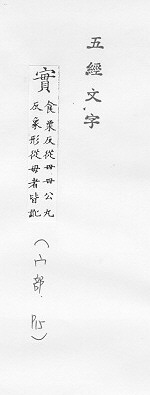 五經文字
實
食栗反從毌毌公丸
反象形從毋者皆訛
(宀部 P15)